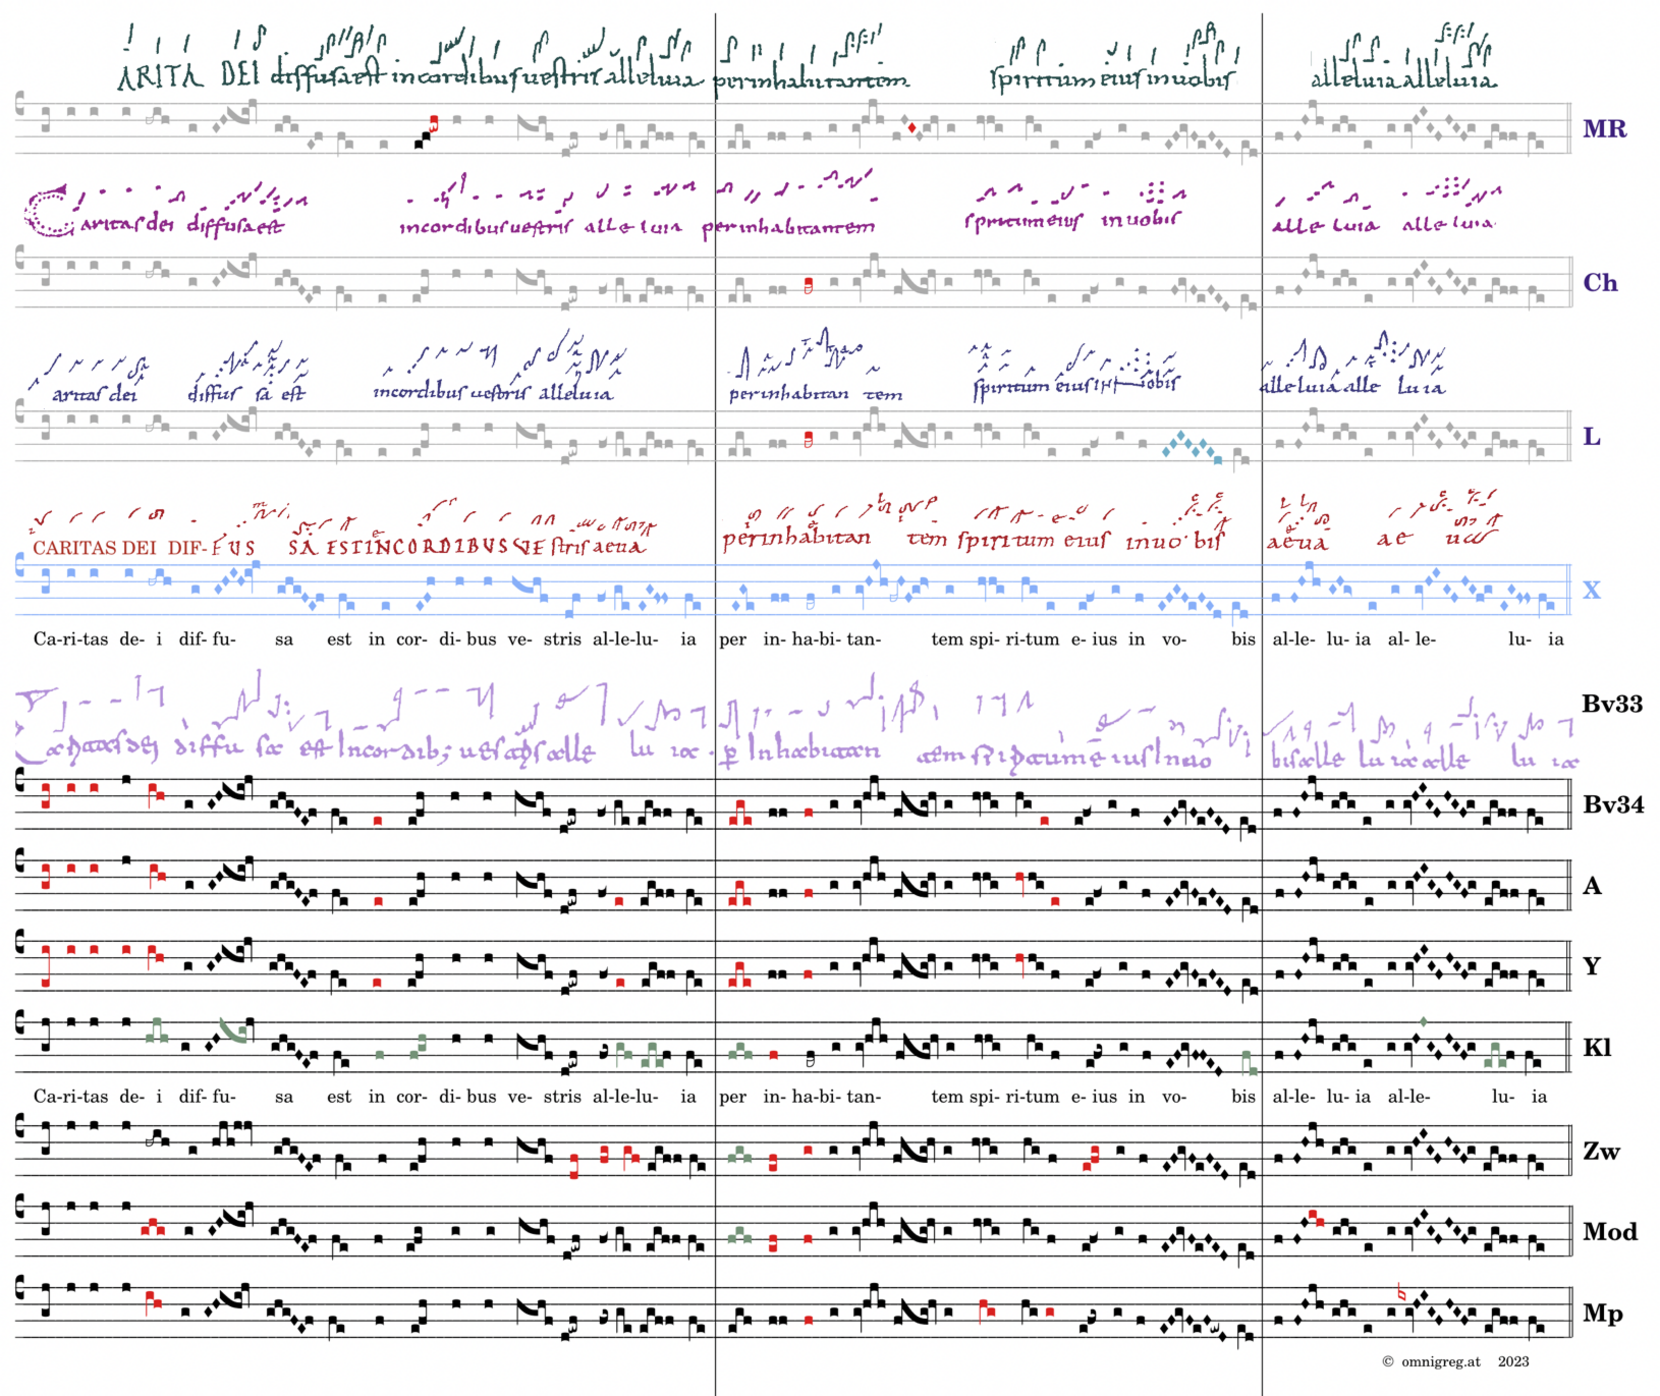 ARITA DEI diffusaest incordibusuestris alleluia perinhabitantem spiritum eiusinuobis alleluia alleluia
MR
Caritas dei diffusa est incordibusuestris alle luia perinhabitantem spritum eius inuobis alle luia alle luia
Ch
aritas dei diffus sa est incordibus uestris alleluia perinhabitan tem spiritum eius alleluia alle luia
L
CARITAS DEI DIF-FUS SA EST INCORDIBUS VEstris aeua perinhabitan tem spiritum eius inuo bis aeua ae
X
Ca-ri-tas de- i dif- fu- sa est in cor- di- bus ve- stris al-le-lu- ia per in- ha-bi- tan- tem spi- ri-tum e- ius in vo- bis al-le- lu- ia al- le- lu- ia
Bv33
diffu est Incordib; lu Inhabitan tem lu lu
Bv34
A
Y
Kl
Ca-ri-tas de- i dif- fu- sa est in cor- di- bus ve- stris al-le-lu- ia per in- ha-bi- tan- tem spi- ri-tum e- ius in vo- bis al-le- lu- ia al-le- lu- ia
Zw
Mod
Mp
© omnigreg.at 2023